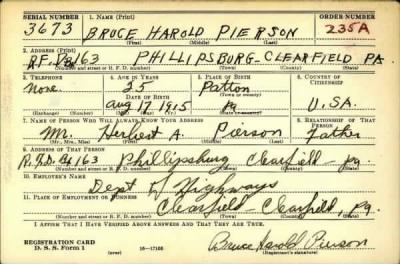 SERIAL NUMBER 1. NAME (Print) ORDER NUMBER
3673 BRUCE HAROLD PIERSON 235A
(First) (Middle) (Last)
2. ADDRESS (Print)
R.F.D. 163 PHILLIPSBURG-CLEARFIELD PA.
(Number and street or R. F. D. number) (Town) (County) (State)
3. TELEPHONE 4. AGE IN YEARS 5. PLACE OF BIRTH 6. COUNTRY OF CITIZENSHIP
None. 25 Patton
DATE OF BIRTH (Town or county)
Aug 17 1915 Pa U.S.A.
(Exchange) (Number) (Mo.) (Day) (Yr.) (State or country)
7. NAME OF PERSON WHO WILL ALWAYS KNOW YOUR ADDRESS 8. RELATIONSHIP OF THAT PERSON
Mr. Herbert A. Pierson Father
(Mr., Mrs., Miss) (First) (Middle) (Last)
9. ADDRESS OF THAT PERSON
R.F.D. 163 Phillipsburg Clearfield Pa.
(Number and street or R. F. D. number) (Town) (County) (State)
10. EMPLOYER'S NAME
Dept of Highways
11. PLACE OF EMPLOYMENT OR BUSINESS
Clearfield - Clearfield, Pa.
(Number and street or R. F. D. number) (Town) (County) (State)
I AFFIRM THAT I HAVE VERIFIED ABOVE ANSWERS AND THAT THEY ARE TRUE.
REGISTRATION CARD
D. S. S. Form 1 (over) 16-17105 Bruce Harold Pierson
(Registrant's signature)